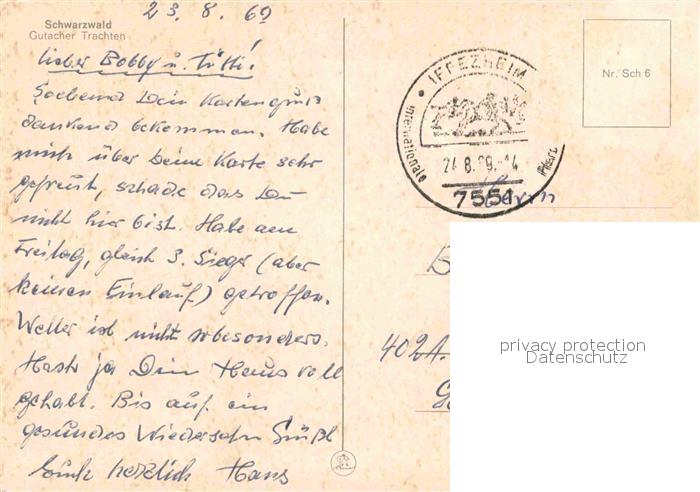 23.8.69
Schwarzwald
Gutacher Trachten
Lieber Bobby u. Tutti!
Soebend Dein Kartengruß
dankend bekommen. Habe
mich über Deine Karte sehr
gefreut, schade das Du
nicht hier bist. Habe am
Freitag, gleich 3. Sieger (aber
keinen Einlauf) getroffen.
Wetter ist nicht sobesonders.
Hast ja Dein Haus voll
gehabt. Bis auf ein
gesundes Wiedersehn Grüßt
Euch herzlich Hans
IFFEZHEIM
Internationale
24.8.69.-14
7551
Herrn
Nr. Sch 6
402
privacy protection
Datenschutz